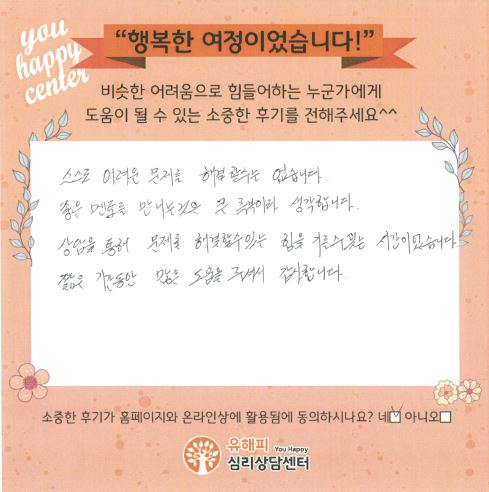 you
happy
center
“행복한 여정이었습니다!”
비슷한 어려움으로 힘들어하는 누군가에게
도움이 될 수 있는 소중한 후기를 전해주세요^^
스스로 어려운 문제를 해결할수는 없습니다.
좋은 멘토를 만나는것은 큰 축복이라 생각합니다.
상담을 통해 문제를 해결할수있는 힘을 기를수있는 시간이었습니다.
짧은 기간동안 많은 도움을 주셔서 감사합니다.
소중한 후기가 홈페이지와 온라인상에 활용됨에 동의하시나요? 네☑ 아니오☐
유해피 You Happy
심리상담센터